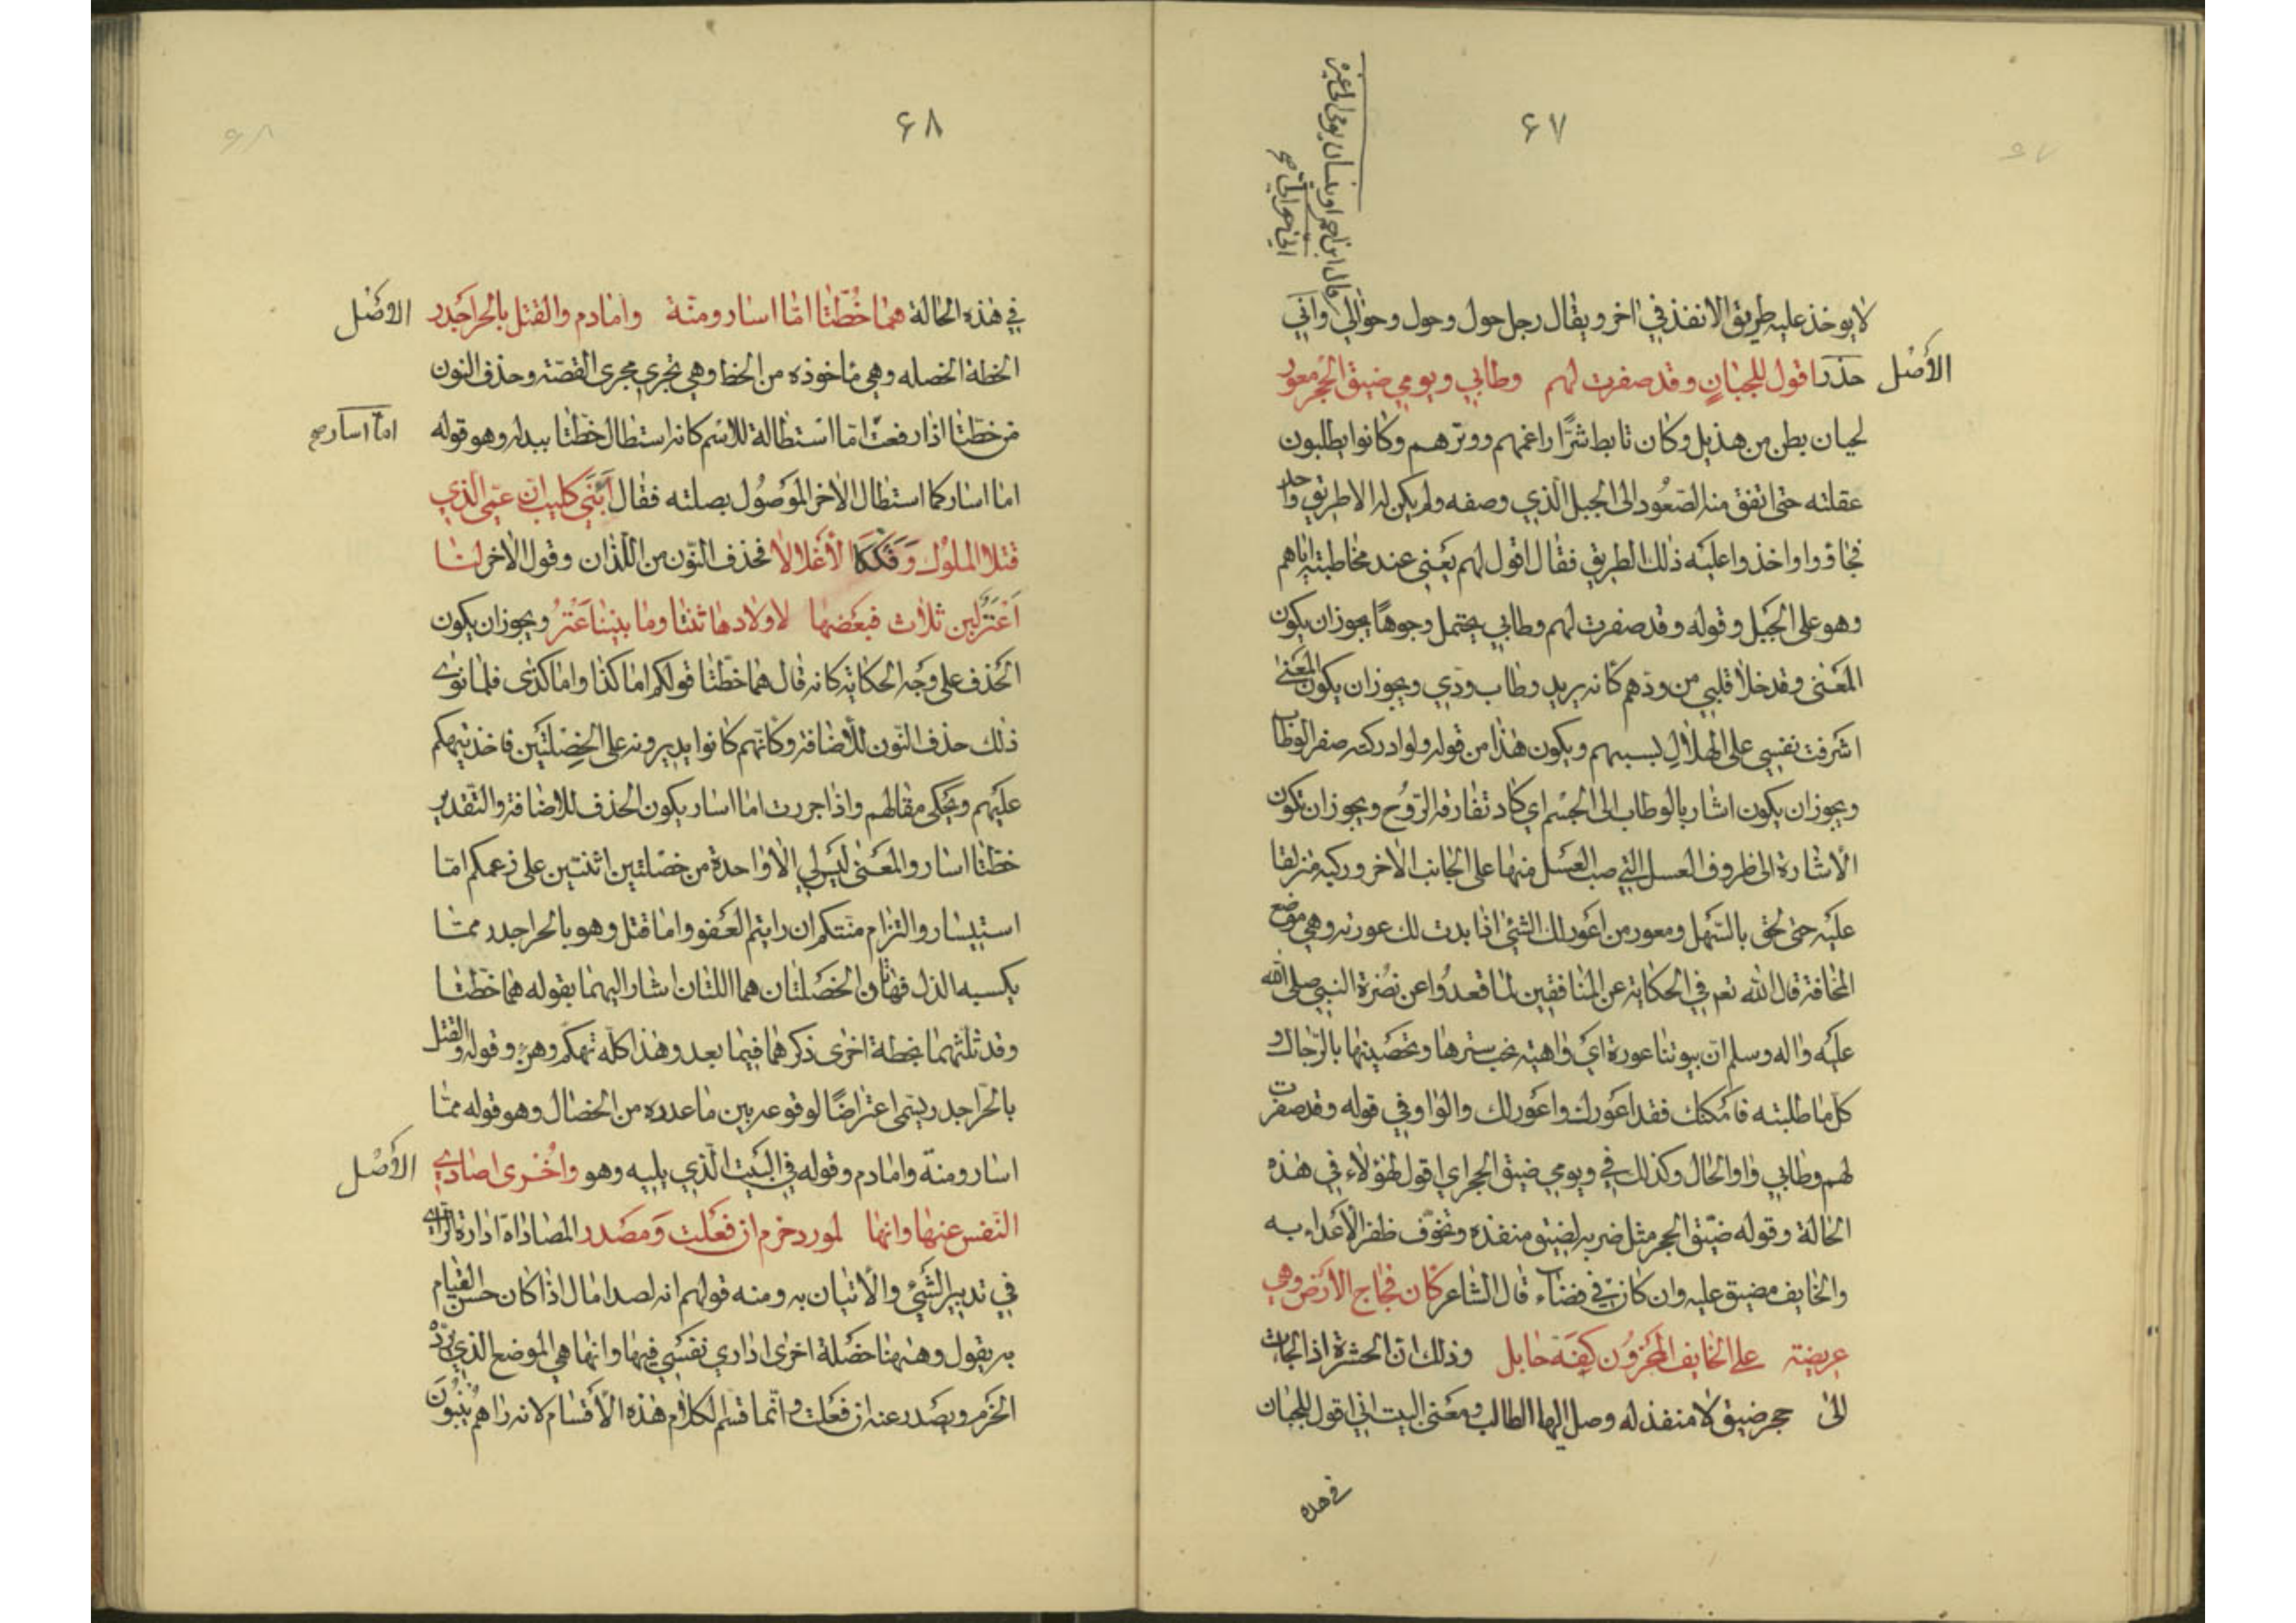 ۶۷
قال ابن احمر او ينسان يومي الى غيره
اني حوالي صح
لا يوخذ عليه طريق الا نفذ في اخر ويقال رجل حول وحول وحوالي واني
حذر
الأصْل
اقول للجيانٍ وقد صفرت لهم وطابي ويومي ضيق الحجر معور
لحيان بطن من هذيل وكان تابط شرًّا راغمهم ووترهم وكانوا يطلبون
عقلته حتى اتفق منه الصّعُود الى الجبل الّذي وصفه ولم يكن له الا طريق واحد
فجاؤوا واخذوا عليَه ذلك الطريق فقال اقول لهم يَعني عند مخاطبته اياهم
وهو على الجَبل وقوله وقد صفرت لهم وطابي يحتمل وجوهًا يجوز ان يكون
المعَنى وقد خلا قلبي من ودّهم كانه يريد وطاب ودّي ويجوز ان يكون المعَنى
اشرفت نفسي على الهلاكِ بسببهم ويكون هذا من قوله ولو ادركنه صفر الوطاب
ويجوز ان يكون اشار بالوطاب الى الجسْم اي كاد تفارقه الرّوُح ويجوز ان تكون
الاشارة الى ظروف العسل التي صب العَسَل منها على الجانب الاخر وركبه متزلقا
عليَه حتى لحق بالسّهل ومعور من اعَور لك الشئ اذا بدت لك عورته وهي موضع
المخافة قال الله تعم في الحكاية عن المنافقين لما قعدُوا عن نصُرة النبي صلى الله
عليَه واله وسلم ان بيوتنا عورة ايَ واهية يجب سترها وتحصَينها بالرّجال و
كلّ ما طلبته فامُكنك فقد اعَورك واعَور لك والواو في قوله وقد صفرت
لهم وطابي واو الحال وكذلك في ويومي ضيق الحجر اي اقول لهؤلاء في هذه
الحالة وقوله ضيّق الحجر مثل ضربه لضيق منفذه وتخوّف ظفر الأعَداء به
والخايف مضيق عليه وان كان في فضاء قال الشاعر كان فجاج الأرَض وهي
عريضة على الخايف المحَزوُن كِفّة حابل وذلك ان الحشرة اذا لجات
الى حجر ضيق لا منفذ له وصل اليها الطالب ومعَنى البيت اني اقول للجيان
في هذه
۶۸
في هذه الحالة هما خُطّتا امّا اسار ومنّة واما دم والقتل بالحر اجَدر
الاصْل
الخطة الخصله وهي ماخوذه من الخط وهي تجري مجرى القصّة وحذف النون
من خطّتا اذا رفعتَ امّا استطالة للاسْم كانه استطال خطّتا ببدله وهو قوله
اما اسار صح
اما اسار كما استطال الاخر الموَصُول بصلته فقال اَبَنَي كليب ان عمّي الذي
قتلا الملوُك وَفَكّكَا الاَغلالا فحذف النّون من اللّذان وقول الاخر لنا
اَعْنُزٌ لبن ثلاث فبعَضها لاولادها ثنتا وما بيننا عَنْزُ ويجوز ان يكون
الحَذف على وجَه الحكاية كانه قال هما خطّتا قولكم اما كذا واما كذى فلما نوى
ذلك حذف النّون للأضافة وكانهم كانوا يديرونه على الخِصْلتَين فاخذ يتهكم
عليَهم ويَحكى مقالهم واذا جررت اما اسار يكون الحذف للاضافة والتّقدير
خطّتا اسار والمعَنى ليَس لي الاّ واحدة من خصْلتين اثنتين على زعمكم امّا
استيسار والتزام منّتكم ان رايتم العَفو واما قتل وهو بالحر اجدر ممّا
يكسبه الذل فهاتان الخصَلتان هما اللتان اشار اليهما بقوله هما خطّتا
وقد ثلثهما بخطة اخرى ذكرهما فيما بعد وهذا كلّه تهكّم وهزء وقوله والقتل
بالحّر اجدر يسَمى اعتراضًا لوقوعه بين ما عدده من الخصال وهو قوله ممّا
اسار ومنّة واما دم وقوله في البَيت الّذي يليه وهو واُخْرى اصادي
الأصْل
النّفس عنها وانها لمورد حزم ان فعَلت وَمصَدر المصاداة ادارة الرّاي
في تدبير الشَيْ والأتيان به ومنه قولهم انه لصدا مال اذا كان حسن القيام
به يقول وههنا خصَلة اخرى اداري نفسَي فيها وانها هي الموضع الذي يرده
الحَزم ويصَدر عنه ان فعَلت وانّما قسّم الكلام هذه الأقَسام لانه راهم يَبنُونَ